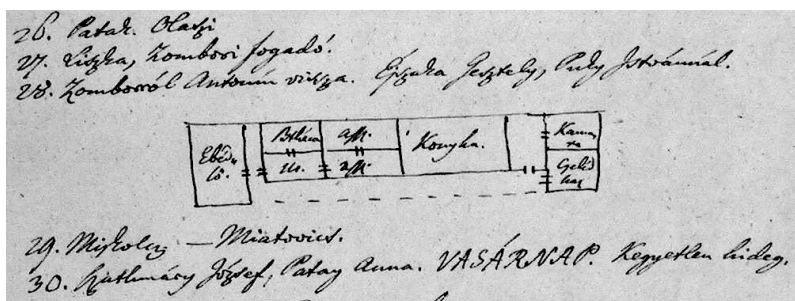 26. Patak. Olaszi
27. Liszka, Zombori fogadó.
28. Zomborról Antonín vissza. Éjszaka Gesztely, Puky Istvánnál.
Ebédlő. Konyha. Kamara
29. Miskolcz — Miatovics.
30. József, Patay Anna. VASÁRNAP. Kegyetlen hideg.